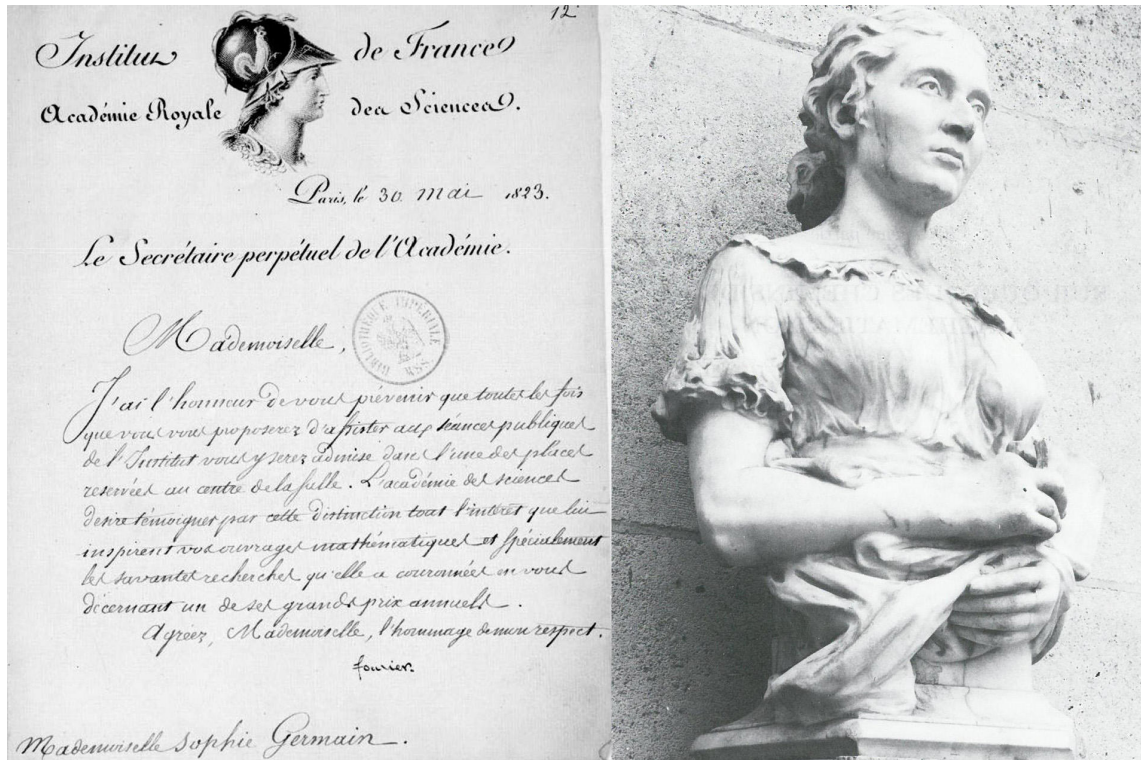 12
Institut de France
Académie Royale des Sciences.
Paris, le 30 mai 1823.
Le Secrétaire perpétuel de l'Académie.
Mademoiselle,
BIBLIOTHÈQUE IMPÉRIALE MSS
J'ai l'honneur de vous prévenir que toutes les fois
que vous vous proposerez d'assister aux séances publiques
de l'Institut vous y serez admise dans l'une des places
reservées au centre de la salle. L'académie des sciences
desire témoigner par cette distinction tout l'intérêt que lui
inspirent vos ouvrages mathématiques et spécialement
les savantes recherches qu'elle a couronnées en vous
décernant un de ses grands prix annuels.
Agréez, Mademoiselle, l'hommage de mon respect.
fourier.
Mademoiselle Sophie Germain.